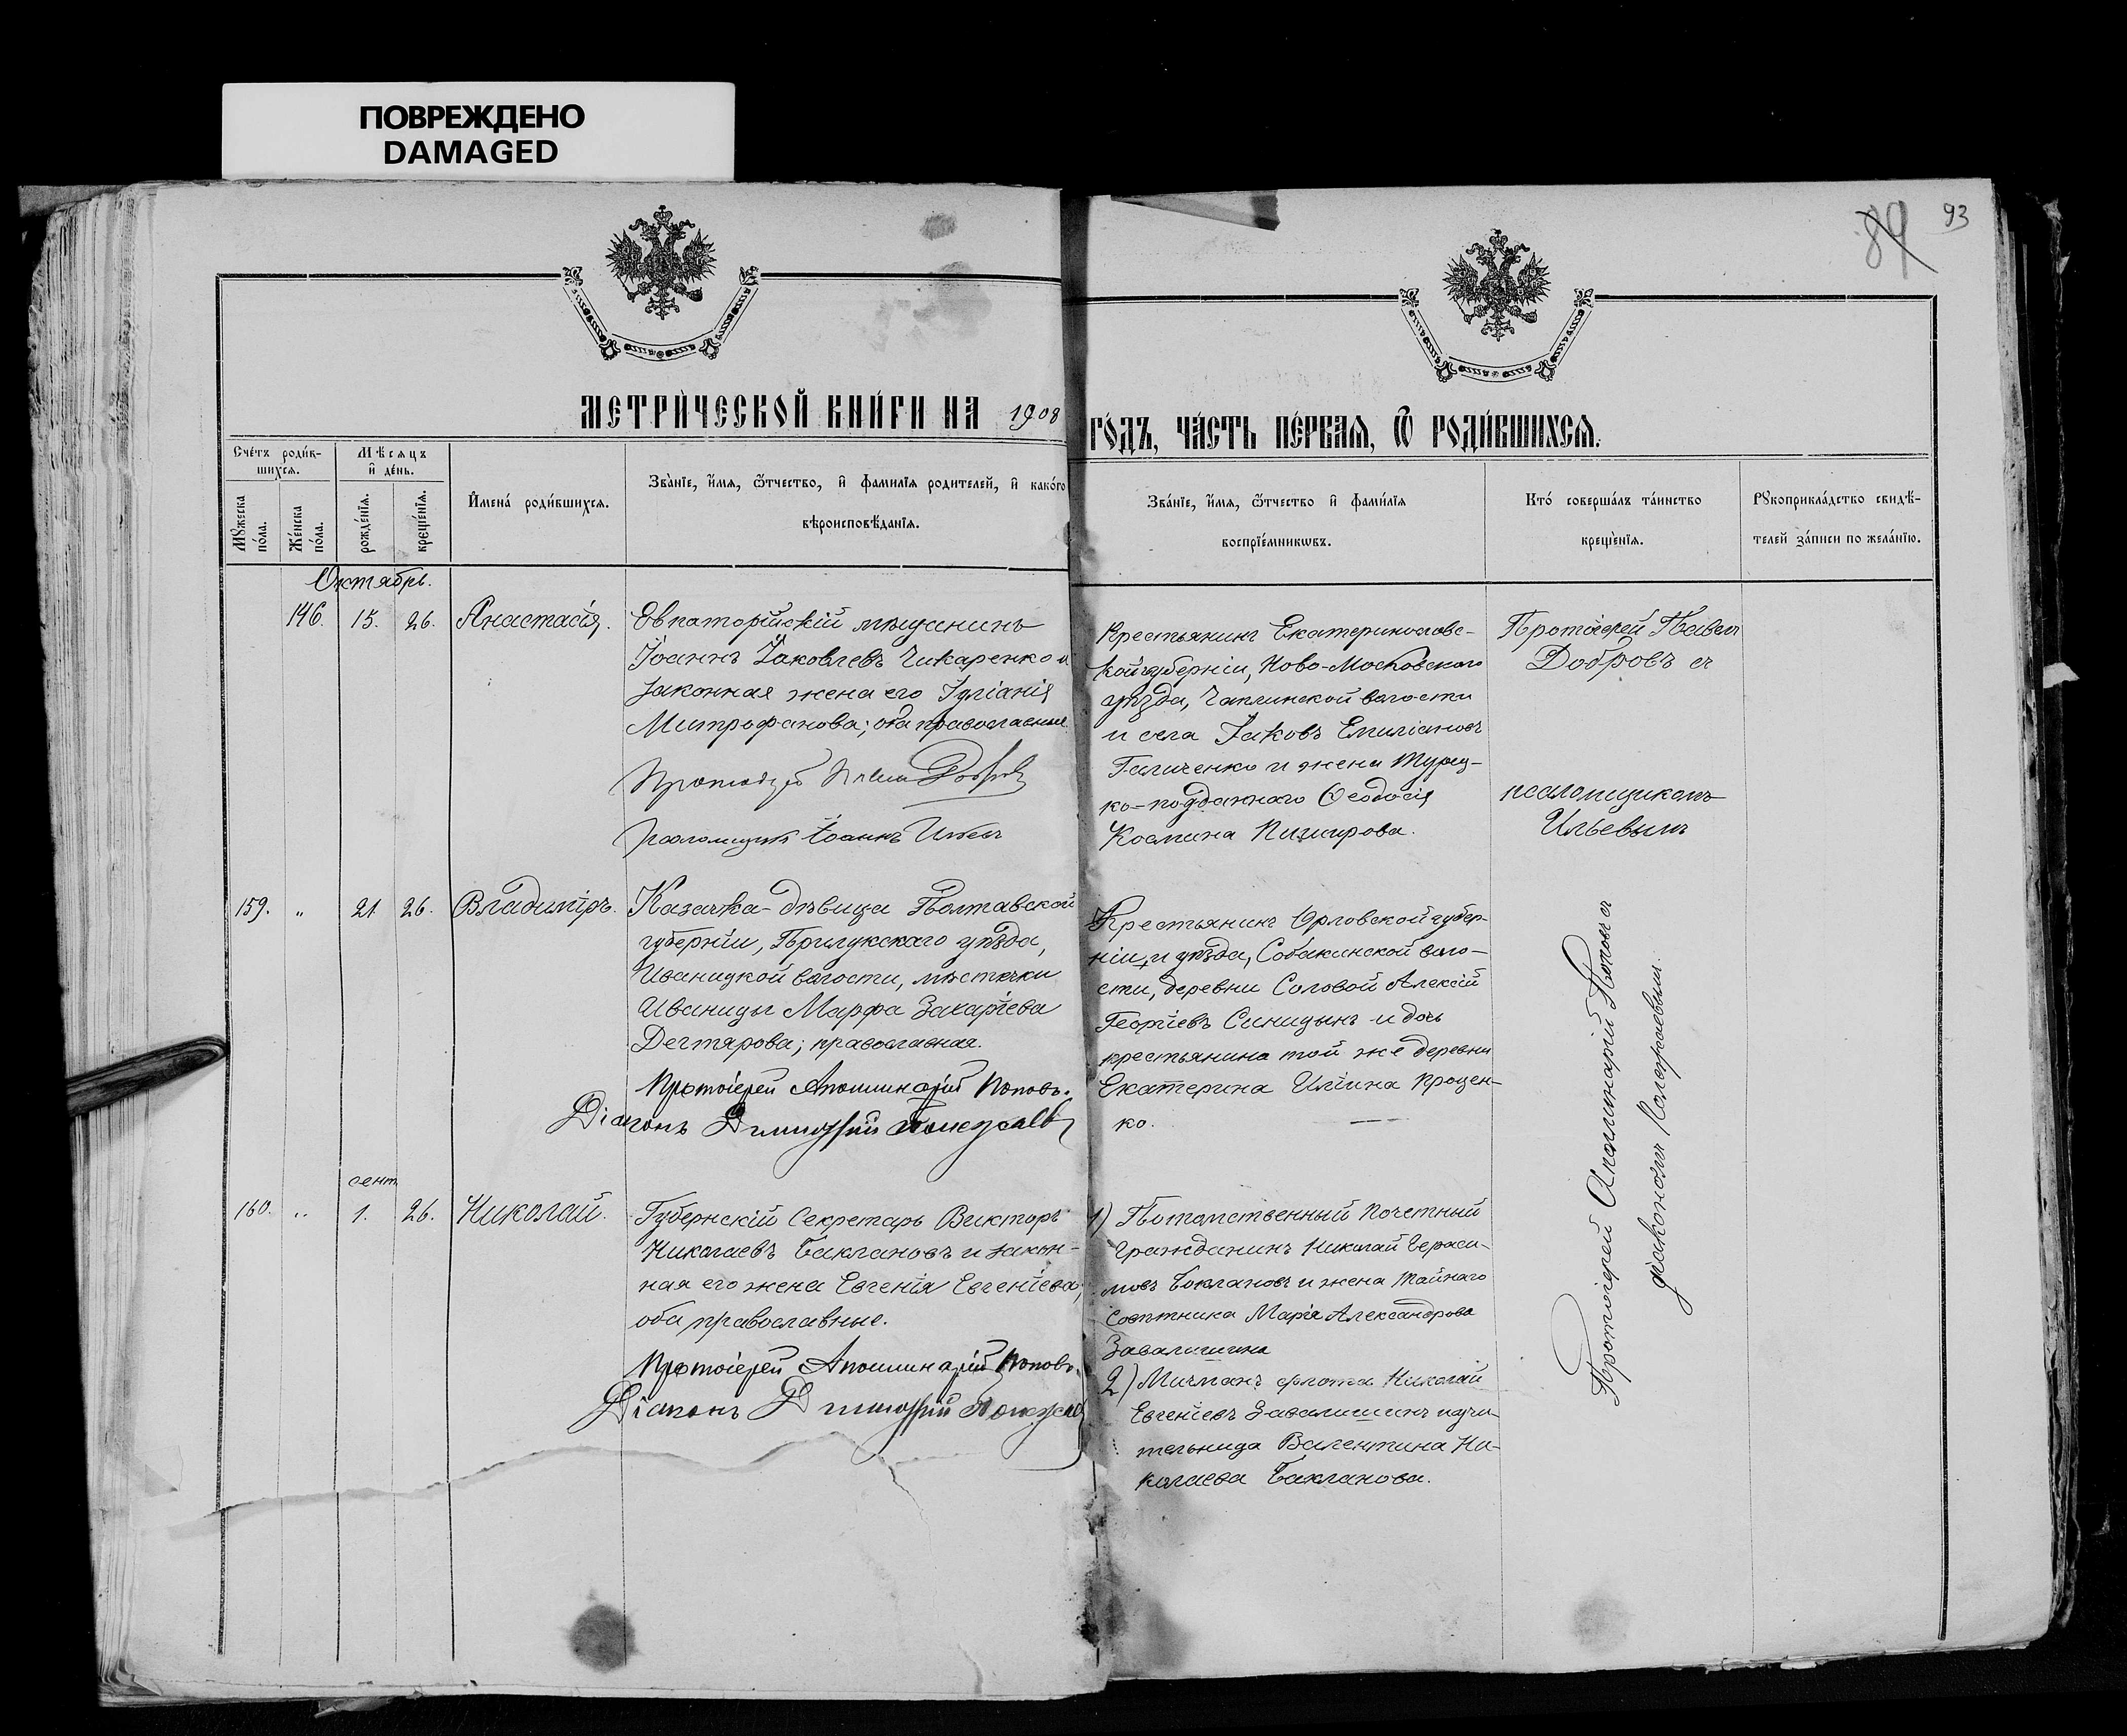 ПОВРЕЖДЕНО
DAMAGED
93
84
МЕТРИ́ЧЕСКОЙ КНИ́ГИ НА 1908
ГО́ДЪ, ЧА́СТЬ ПЕ́РВАЯ, Ѿ РОДИ́ВШИХСЯ.
Сче́тъ роди́в-
шихся.
Мѣсяцъ
и де́нь.
Мꙋжеска
по́ла.
Же́нска
по́ла.
рожде́нїя.
креще́нїя.
И́мена́ роди́вшихся.
Зва́нїе, и́мя, ѻ́тчество, и фами́лїя родителей, и како́го
вѣроисповѣ́данїя.
Зва́нїе, и́мя, ѻ́тчество и фами́лїя
воспрїе́мникѡвъ.
Кто́ соверша́лъ та́инство
креще́нїя.
Рꙋкоприкла́дство свидѣ́-
телей за́писи по жела́нїю.
Октябрь.
146. 15. 26. Анастасія.
Евпаторійскій мѣщанинъ
Іоаннъ Іаковлевъ Чикаренко и
законная жена его Іуліанія
Митрофанова; оба православные
Протоіерей Павелъ Добровъ
Псаломщикъ Іоаннъ Ильевъ
Крестьянинъ Екатеринославс-
кой губерніи, Ново-Московскаго
уѣзда, Чаплинской волости
и села Іаковъ Емиліановъ
Галиченко и жена Турец-
ко-подданнаго Ѳеодосія
Космина
Протоіерей Павелъ
Добровъ съ
псаломщикомъ
Ильевымъ
159. " 21. 26. Владиміръ.
Казачка-дѣвица Полтавской
губерніи, Прилукскаго уѣзда,
Иваницкой волости, мѣстечка
Иваницы Марфа Захаріева
Дегтярова; православная.
Протоіерей Аполлинарій Поповъ.
Діаконъ Димитрій
Крестьянинъ Орловской губер-
ніи, и уѣзда, Собакинской воло-
сти, деревни Соловой Алексій
Георгіевъ Синицынъ и дочь
крестьянина той же деревни
Екатерина Иліина Процен-
ко.
Протоіерей Аполлинарій Поповъ съ
діакономъ
сент.
160. " 1. 26. Николай.
Губернскій Секретарь Викторъ
Николаевъ Баклановъ и закон-
ная его жена Евгенія Евгеніева;
оба православные.
Протоіерей Аполлинарій Поповъ.
Діаконъ Димитрій
1) Потомственный Почетный
Гражданинъ Николай Гераси-
мовъ Баклановъ и жена Тайнаго
Совѣтника Марія Александрова
Завалишина
2) Мичманъ флота Николай
Евгеніевъ Завалишинъ и учи-
тельница Валентина Ни-
колаева Бакланова.